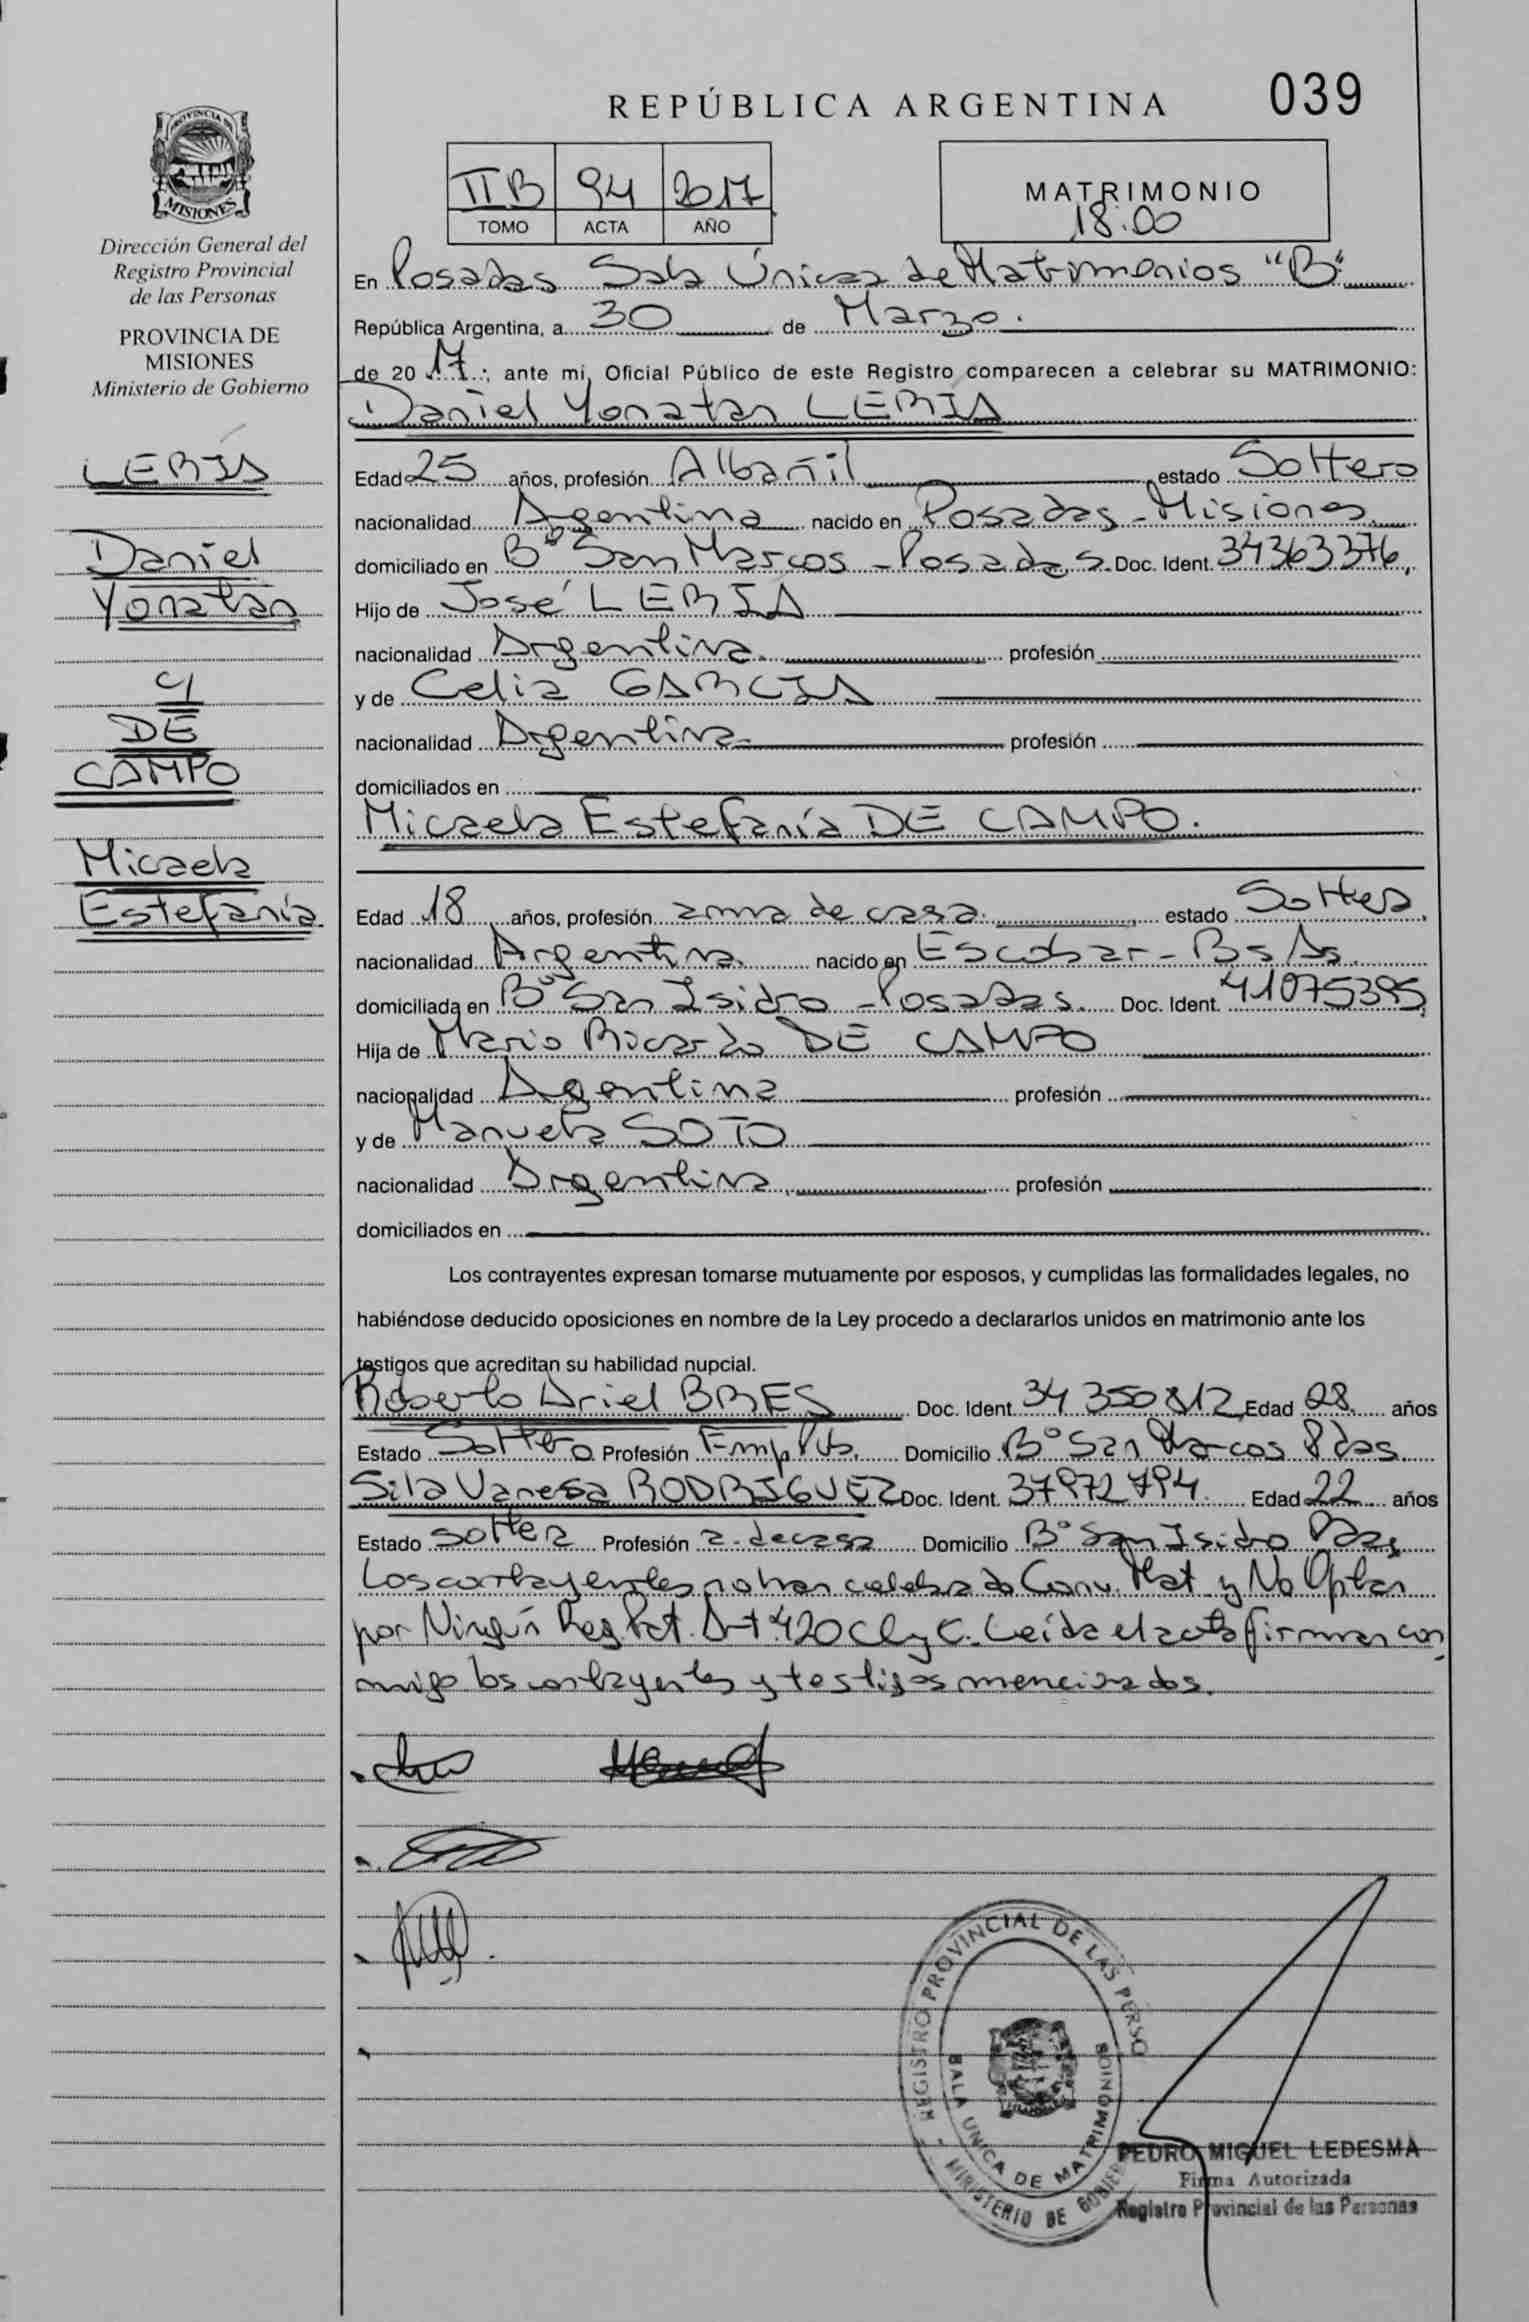 REPÚBLICA ARGENTINA 039
PROVINCIA DE
MISIONES
Dirección General del
Registro Provincial
de las Personas
PROVINCIA DE
MISIONES
Ministerio de Gobierno
LERIA
Daniel
Yonatan
c/
DE
CAMPO
Micaela
Estefanía
IIB 94 2017
TOMO ACTA AÑO
MATRIMONIO
18:00
En Posadas Sala Única de Matrimonios "B"
República Argentina, a 30 de Marzo.
de 20 17 ; ante mi, Oficial Público de este Registro comparecen a celebrar su MATRIMONIO:
Daniel Yonatan LERIA
Edad 25 años, profesión Albañil estado Soltero
nacionalidad Argentina nacido en Posadas - Misiones
domiciliado en B° San Marcos - Posadas. Doc. Ident. 34363376,
Hijo de José LERIA
nacionalidad Argentina. profesión
y de Celia GARCIA
nacionalidad Argentina profesión
domiciliados en
Micaela Estefanía DE CAMPO.
Edad 18 años, profesión ama de casa. estado Soltera
nacionalidad Argentina. nacido en Escobar - Bs As.
domiciliada en B° San Isidro - Posadas. Doc. Ident. 41075395
Hija de Mario Ricardo DE CAMPO
nacionalidad Argentina profesión
y de Manuela SOTO
nacionalidad Argentina profesión
domiciliados en
Los contrayentes expresan tomarse mutuamente por esposos, y cumplidas las formalidades legales, no
habiéndose deducido oposiciones en nombre de la Ley procedo a declararlos unidos en matrimonio ante los
testigos que acreditan su habilidad nupcial.
Roberto Ariel BRES Doc. Ident. 34 350 812 Edad 28 años
Estado Soltero Profesión Emp. Pub. Domicilio B° San Marcos Pdas
Silva Vanesa RODRIGUEZ Doc. Ident. 37972794 Edad 22 años
Estado soltera Profesión a. de casa Domicilio B° San Isidro Pdas
Los contrayentes no han celebrado Conv. Mat y No Optan
por Ningún Reg Pat. Art. 420 CC y C. Leída el acta firman con
migo los contrayentes y testigos mencionados.
REGISTRO PROVINCIAL DE LAS PERSO
SALA UNICA DE MATRIMONIOS
- MINISTERIO DE GOBIER
PEDRO MIGUEL LEDESMA
Firma Autorizada
Registro Provincial de las Personas